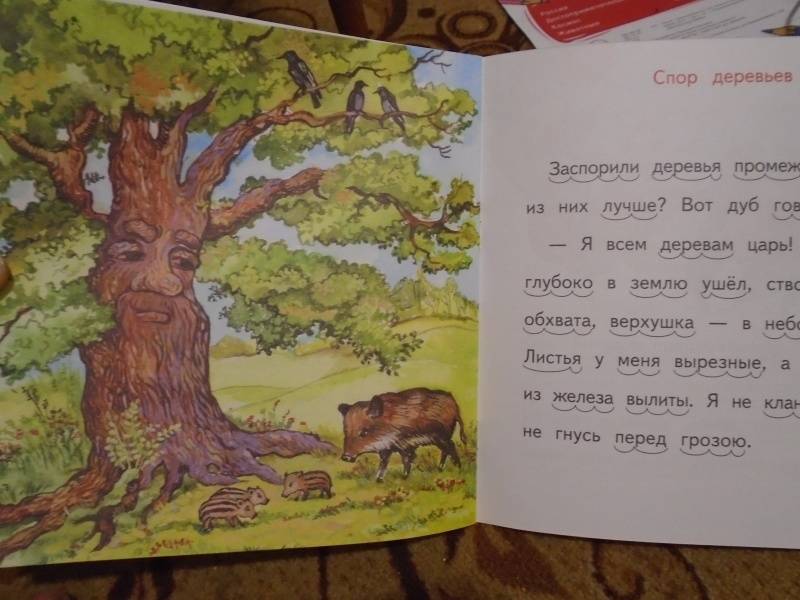 Россия
Космос
Животные
Спор деревьев
Заспорили деревья промеж
из них лучше? Вот дуб гов
— Я всем деревам царь!
глубоко в землю ушёл, ство
обхвата, верхушка — в небо
Листья у меня вырезные, а
из железа вылиты. Я не клан
не гнусь перед грозою.